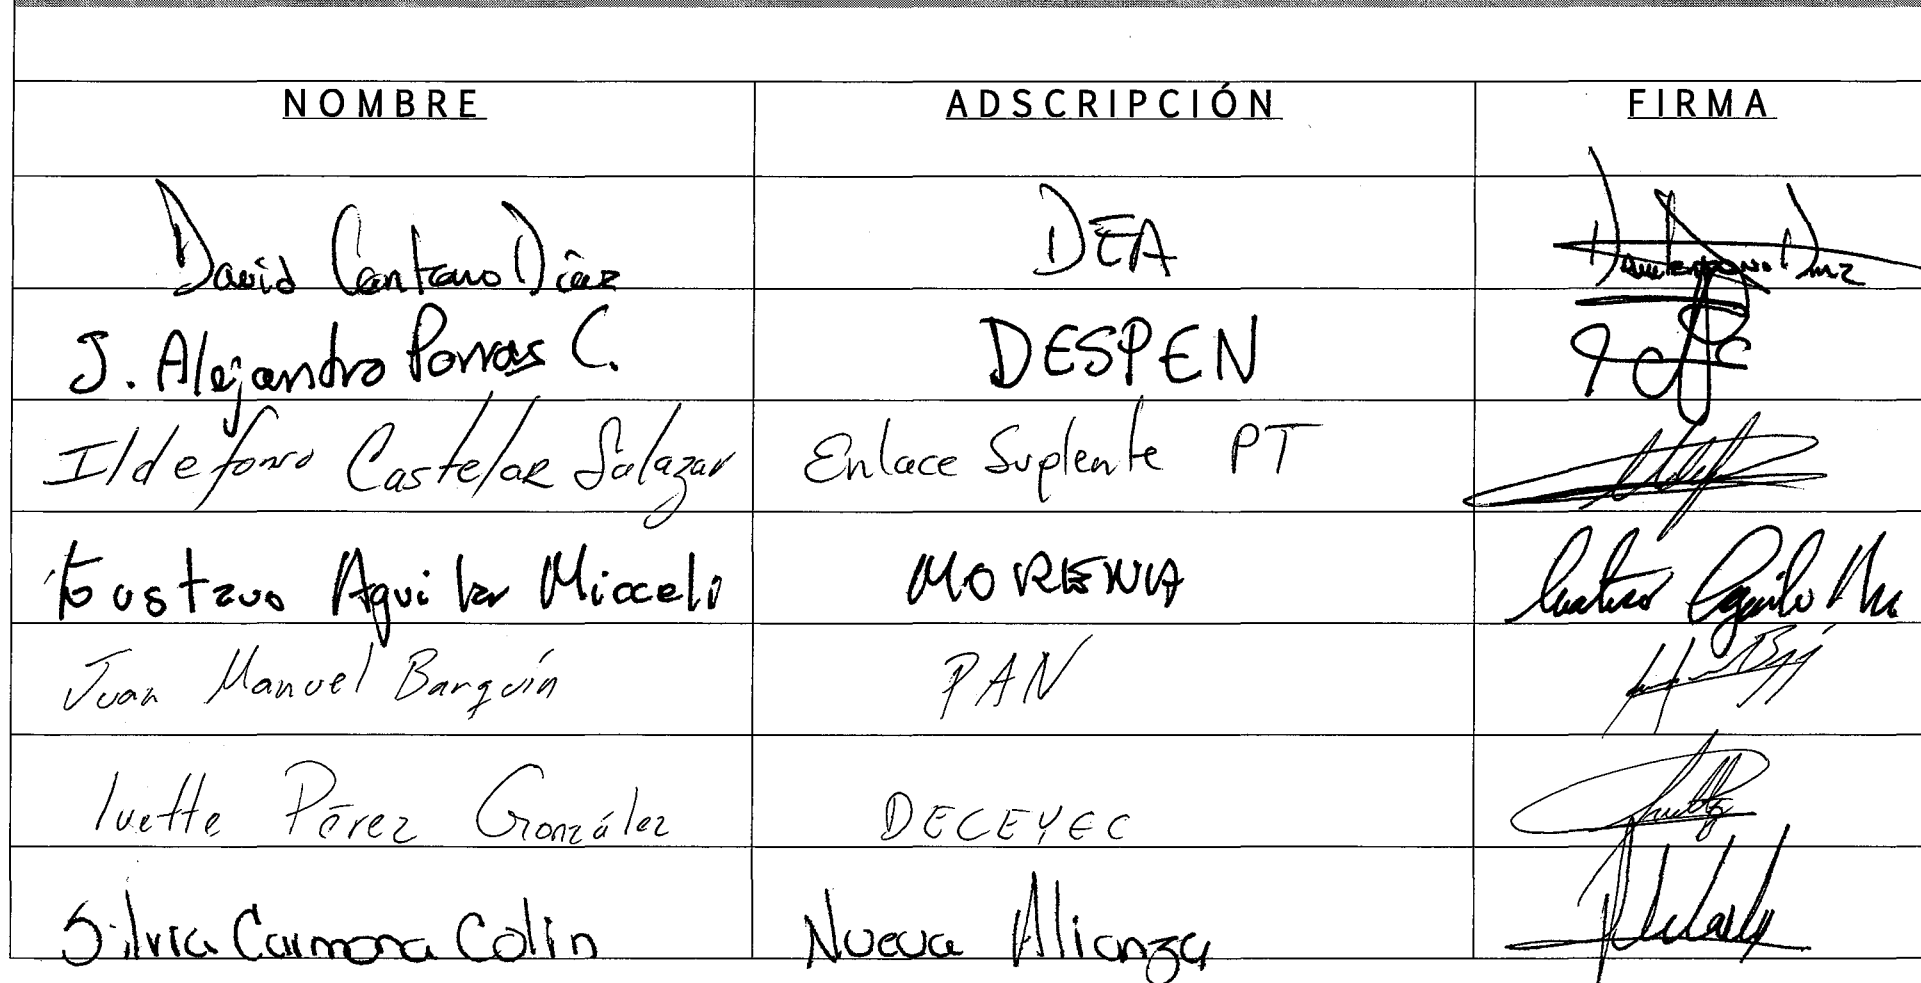 NOMBRE ADSCRIPCIÓN FIRMA
David Centeno Díaz DEA
J. Alejandro Porras C. DESPEN
Ildefonso Castelar Salazar Enlace Suplente PT
Gustavo Aguilar Micceli MORENA
Juan Manuel Barquín PAN
Ivette Pérez González DECEYEC
Silvia Carmona Colin Nueva Alianza